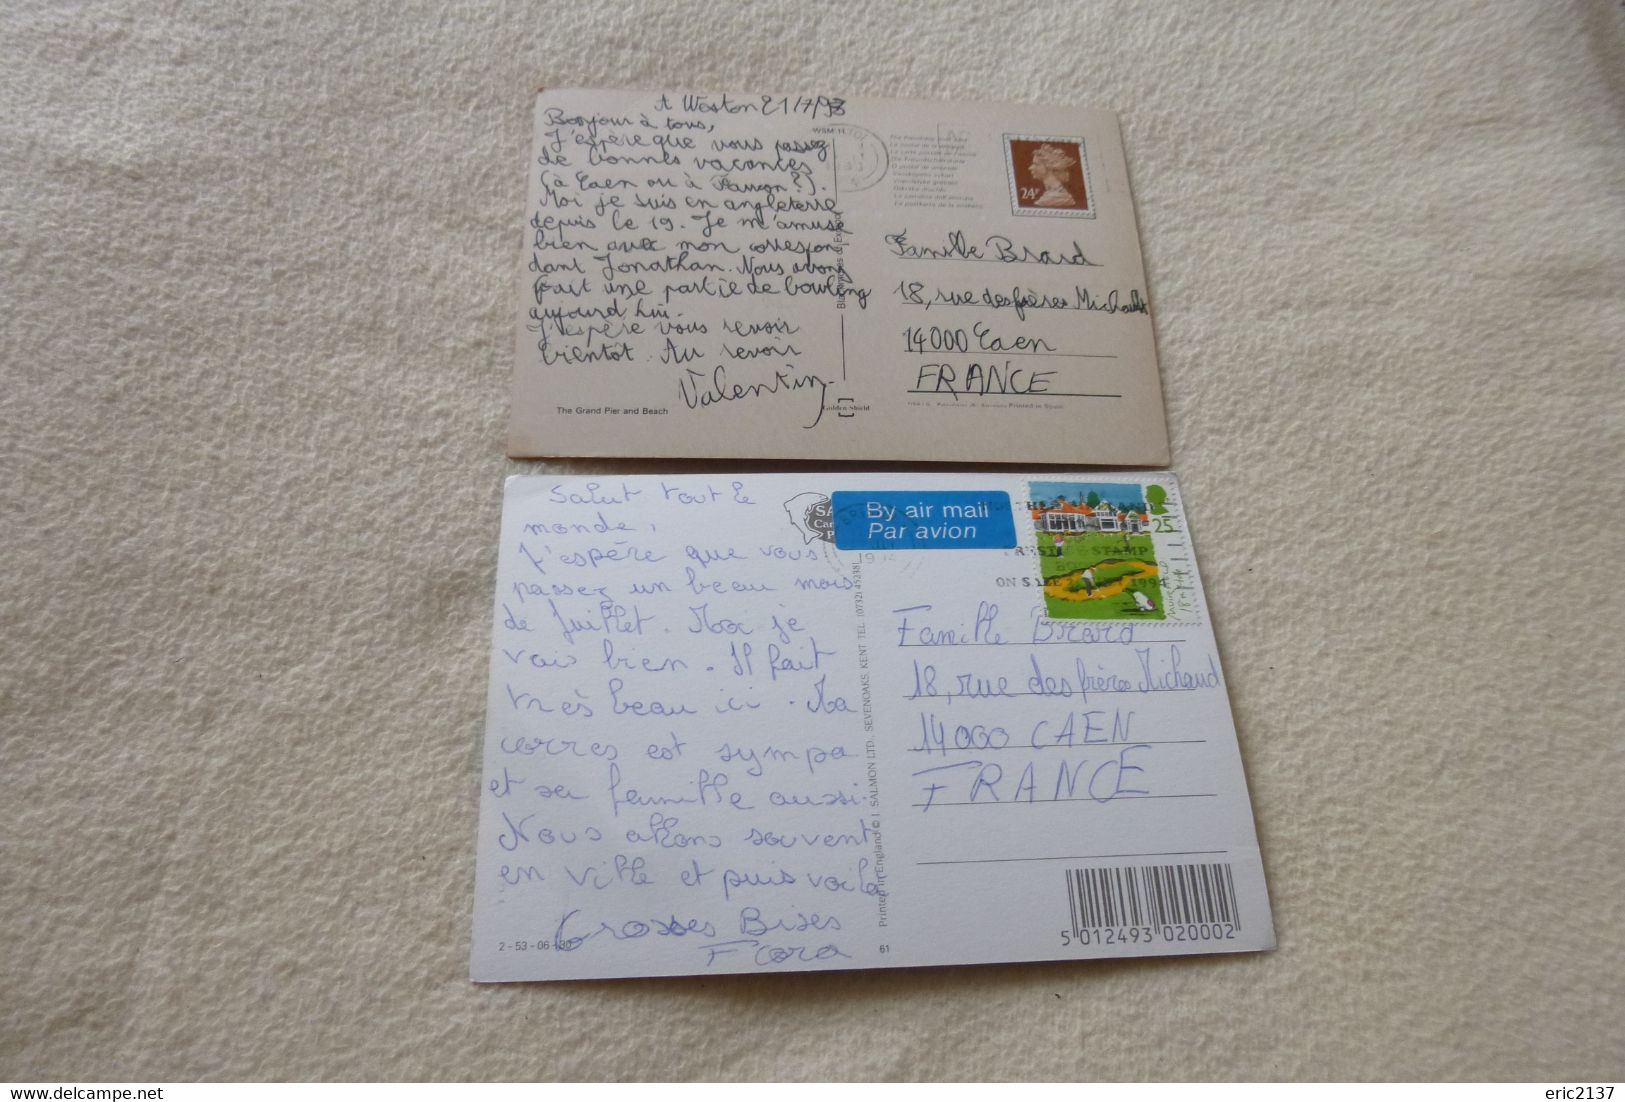 A Weston 21/7/93
Bonjour à tous,
J'espère que vous passez
de bonnes vacances
(à Caen ou à ?).
Moi je suis en angleterre
depuis le 19. Je m'amuse
bien avec mon correspon
dant Jonathan. Nous avons
fait une partie de bowling
aujourd'hui.
J'espère vous revoir
bientôt. Au revoir
Valentin
The Grand Pier and Beach
Golden Shield
WSM
24P
Famille Brard
18, rue des frères Michault
14000 Caen
FRANCE
Printed in Spain
Salut tout le
monde,
J'espère que vous
passez un beau mois
de Juillet. Moi je
vais bien. Il fait
très beau ici. Ma
corres est sympa
et sa famille aussi.
Nous allons souvent
en ville et puis voilà
Grosses Bises
Flora
2-53-06-30
61
Printed in England © J. SALMON LTD., SEVENOAKS, KENT TEL. (0732) 452381
By air mail
Par avion
25
STAMP
1994
Famille Brard
18, rue des frères Michaud
14000 CAEN
FRANCE
5 012493 020002
eric2137